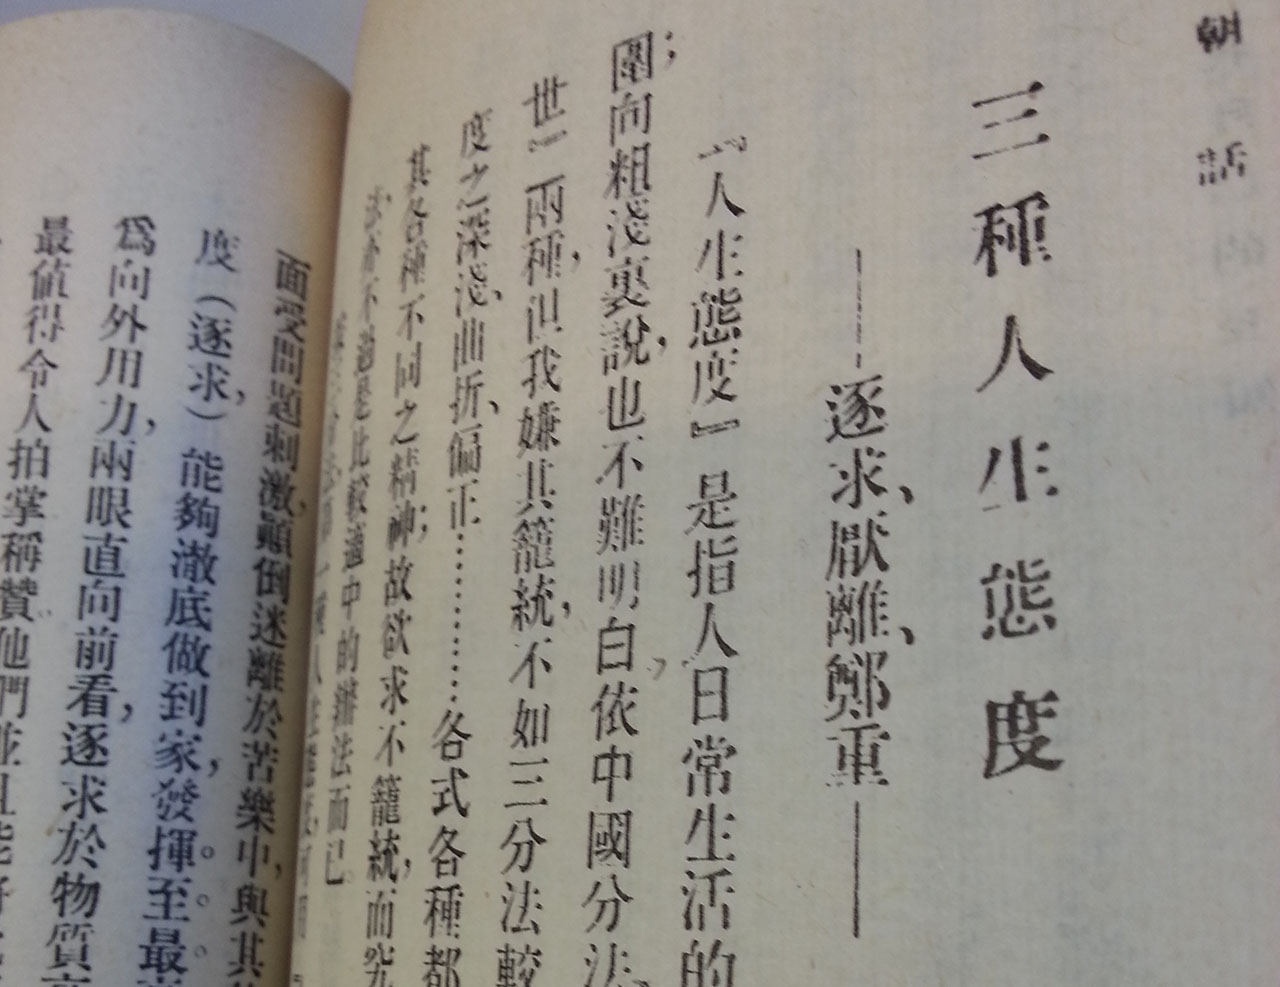 朝話
三種人生態度
——逐求、厭離、鄭重——
『人生態度』是指人日常生活的
圍向粗淺裏說，也不難明白依中國分法、
世』兩種，但我嫌其籠統，不如三分法較
度之深淺、曲折、偏正…………各式各種都
其各種不同之精神；故欲求不籠統，而究
法亦不過是比較適中的辦法而已。
面受問題刺激，顛倒迷離於苦樂中，與其
度（逐求，）能夠澈底做到家，發揮至最
為向外用力，兩眼直向前看，逐求於物質
最值得令人拍掌稱贊他們並且能